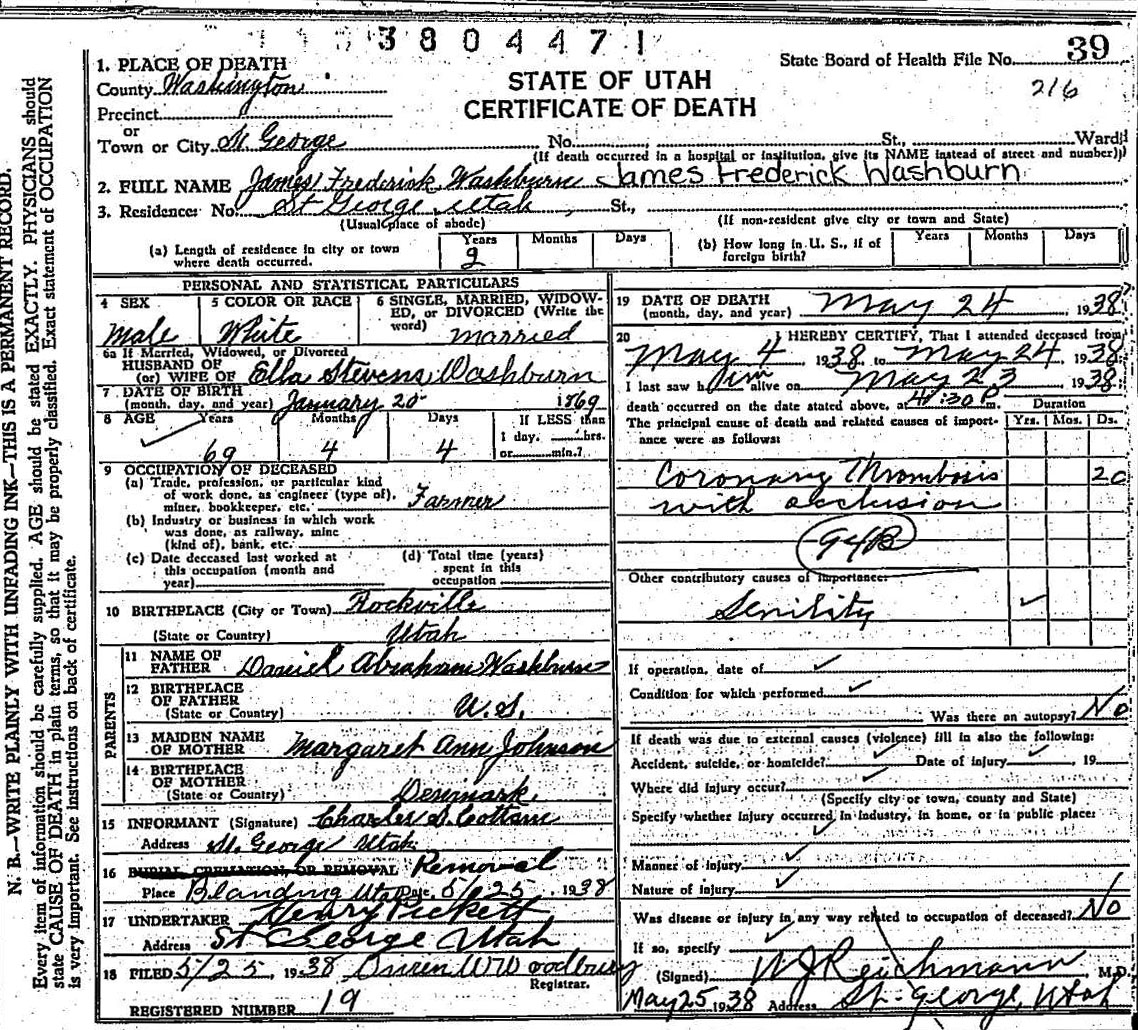 3804471
State Board of Health File No. 39
216
STATE OF UTAH
CERTIFICATE OF DEATH
1. PLACE OF DEATH
County Washington
Precinct
or
Town or City St. George No. St., Ward
(If death occurred in a hospital or institution, give its NAME instead of street and number)
2. FULL NAME James Frederick Washburn James Frederick Washburn
3. Residence: No. St George Utah, St.,
(Usual place of abode) (If non-resident give city or town and State)
(a) Length of residence in city or town where death occurred. Years 2 Months Days
(b) How long in U. S., if of foreign birth? Years Months Days
PERSONAL AND STATISTICAL PARTICULARS
4 SEX Male
5 COLOR OR RACE White
6 SINGLE, MARRIED, WIDOWED, OR DIVORCED (Write the word) married
6a If Married, Widowed, or Divorced
HUSBAND OF
(or) WIFE OF Ella Stevens Washburn
7 DATE OF BIRTH
(month, day, and year) January 20 1869
8 AGE Years 69 Months 4 Days 4 If LESS than 1 day, hrs. or min.?
9 OCCUPATION OF DECEASED
(a) Trade, profession, or particular kind
of work done, as engineer (type of),
miner, bookkeeper, etc. Farmer
(b) Industry or business in which work
was done, as railway, mine
(kind of), bank, etc.
(c) Date deceased last worked at
this occupation (month and
year)
(d) Total time (years)
spent in this
occupation
10 BIRTHPLACE (City or Town) Rockville
(State or Country) Utah
PARENTS
11 NAME OF
FATHER Daniel Abraham Washburn
12 BIRTHPLACE
OF FATHER
(State or Country) U.S.
13 MAIDEN NAME
OF MOTHER Margaret Ann Johnson
14 BIRTHPLACE
OF MOTHER
(State or Country) Denmark
15 INFORMANT (Signature) Charles S. Cottam
Address St. George Utah
16 BURIAL, CREMATION, OR REMOVAL Removal
Place Blanding Utah Date 5/25, 1938
17 UNDERTAKER Henry Pickett
Address St George Utah
18 FILED 5/25, 1938 Woodbury
Registrar.
REGISTERED NUMBER 19
19 DATE OF DEATH
(month, day, and year) May 24 1938
20 I HEREBY CERTIFY, That I attended deceased from
May 4 1938 to May 24 1938
I last saw him alive on May 23 1938
death occurred on the date stated above, at 4:30 P m. Duration
The principal cause of death and related causes of importance were as follows: Yrs. Mos. Ds.
Coronary Thrombosis 20
with occlusion
Other contributory causes of importance:
Senility
If operation, date of
Condition for which performed
Was there an autopsy? No
If death was due to external causes (violence) fill in also the following:
Accident, suicide, or homicide? Date of injury , 19
Where did injury occur?
(Specify city or town, county and State)
Specify whether injury occurred in industry, in home, or in public place:
Manner of injury
Nature of injury
Was disease or injury in any way related to occupation of deceased? No
If so, specify
(Signed) W J Reichmann, M.D.
May 25 1938 Address St. George, Utah
N. B.—WRITE PLAINLY WITH UNFADING INK—THIS IS A PERMANENT RECORD.
Every item of information should be carefully supplied. AGE should be stated EXACTLY. PHYSICIANS should
state CAUSE OF DEATH in plain terms, so that it may be properly classified. Exact statement of OCCUPATION
is very important. See instructions on back of certificate.